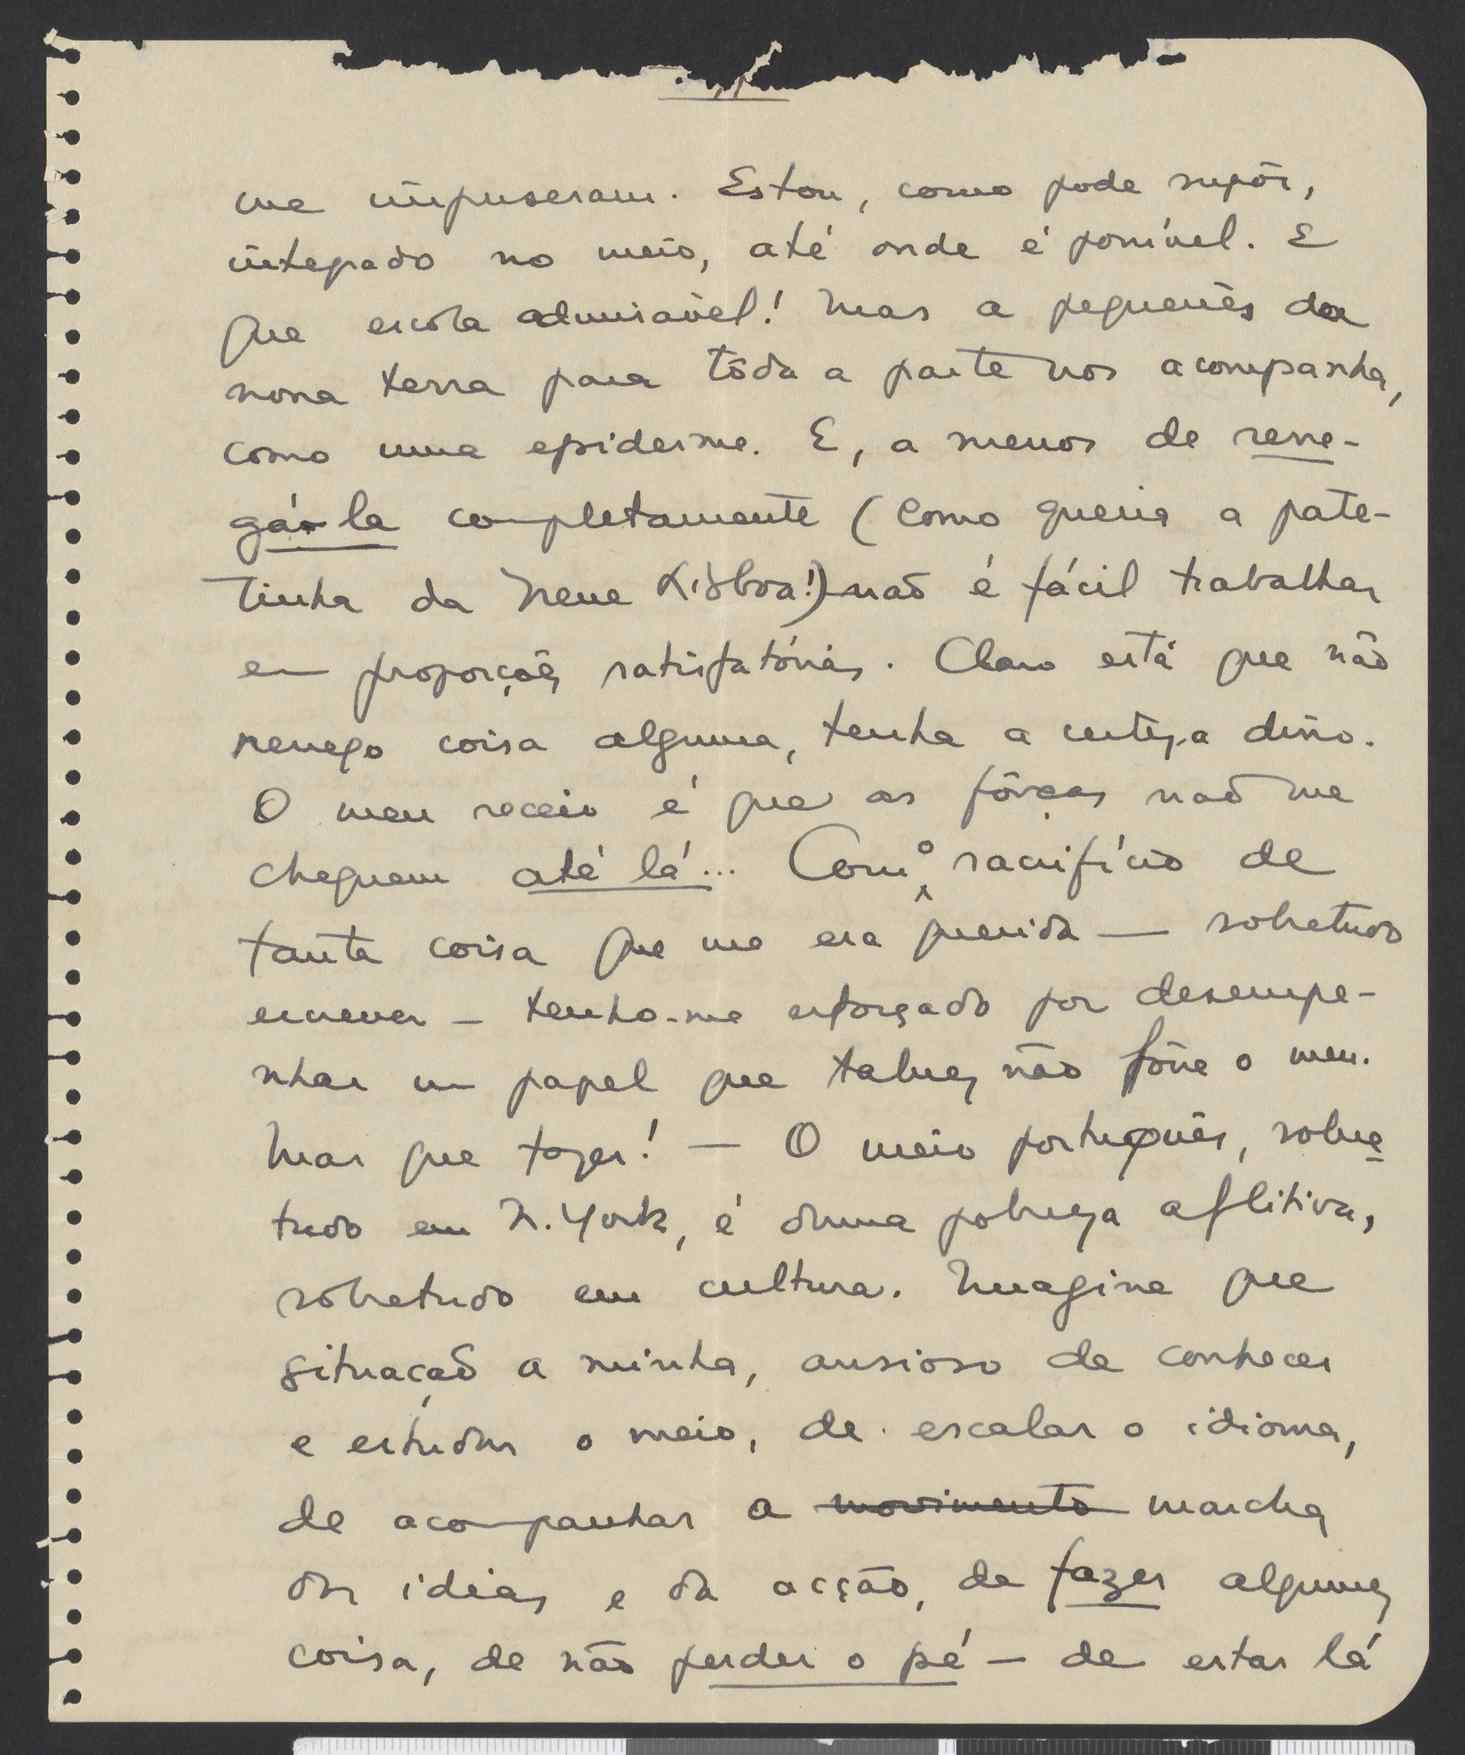 me impuseram. Estou, como pode supôr,
integrado no meio, até onde é possível. E
que escola admirável! Mas a pequenês da
nossa terra para tôda a parte nos acompanha,
como uma epiderme. E, a menos de rene-
gá-la completamente (como queria a pate-
tinha da Irene Lisboa!) não é fácil trabalhar
em proporções satisfatórias. Claro está que não
renego coisa alguma, tenha a certeza disso.
O meu receio é que as fôrças não me
cheguem até lá... Com o sacrifício de
tanta coisa que me era querida — sobretudo
escrever — tenho-me esforçado por desempe-
nhar um papel que talvez não fôsse o meu.
Mas que fazer! — O meio português, sobre
tudo em N. York, é duma pobreza aflitiva,
sobretudo em cultura. Imagine que
situação a minha, ansioso de conhecer
e estudar o meio, de escalar o idioma,
de acompanhar a movimento marcha
das ideias e da acção, de fazer alguma
coisa, de não perder o pé — de estar lá